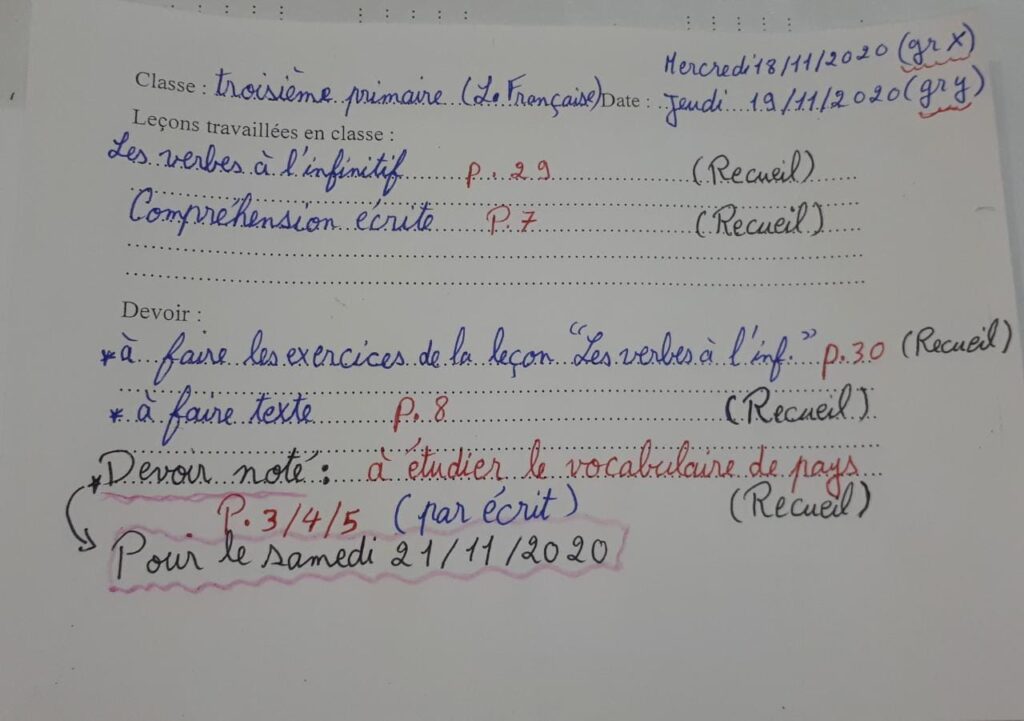 Mercredi 18/11/2020 (gr X)
Classe : troisième primaire (L. Française) Date : Jeudi 19/11/2020 (gr y)
Leçons travaillées en classe :
Les verbes à l'infinitif p. 29 (Recueil)
Compréhension écrite P.7 (Recueil)
Devoir :
* à faire les exercices de la leçon "Les verbes à l'inf." p.30 (Recueil)
* à faire texte p.8 (Recueil)
* Devoir noté : à étudier le vocabulaire de pays
P.3/4/5 (par écrit) (Recueil)
Pour le samedi 21/11/2020